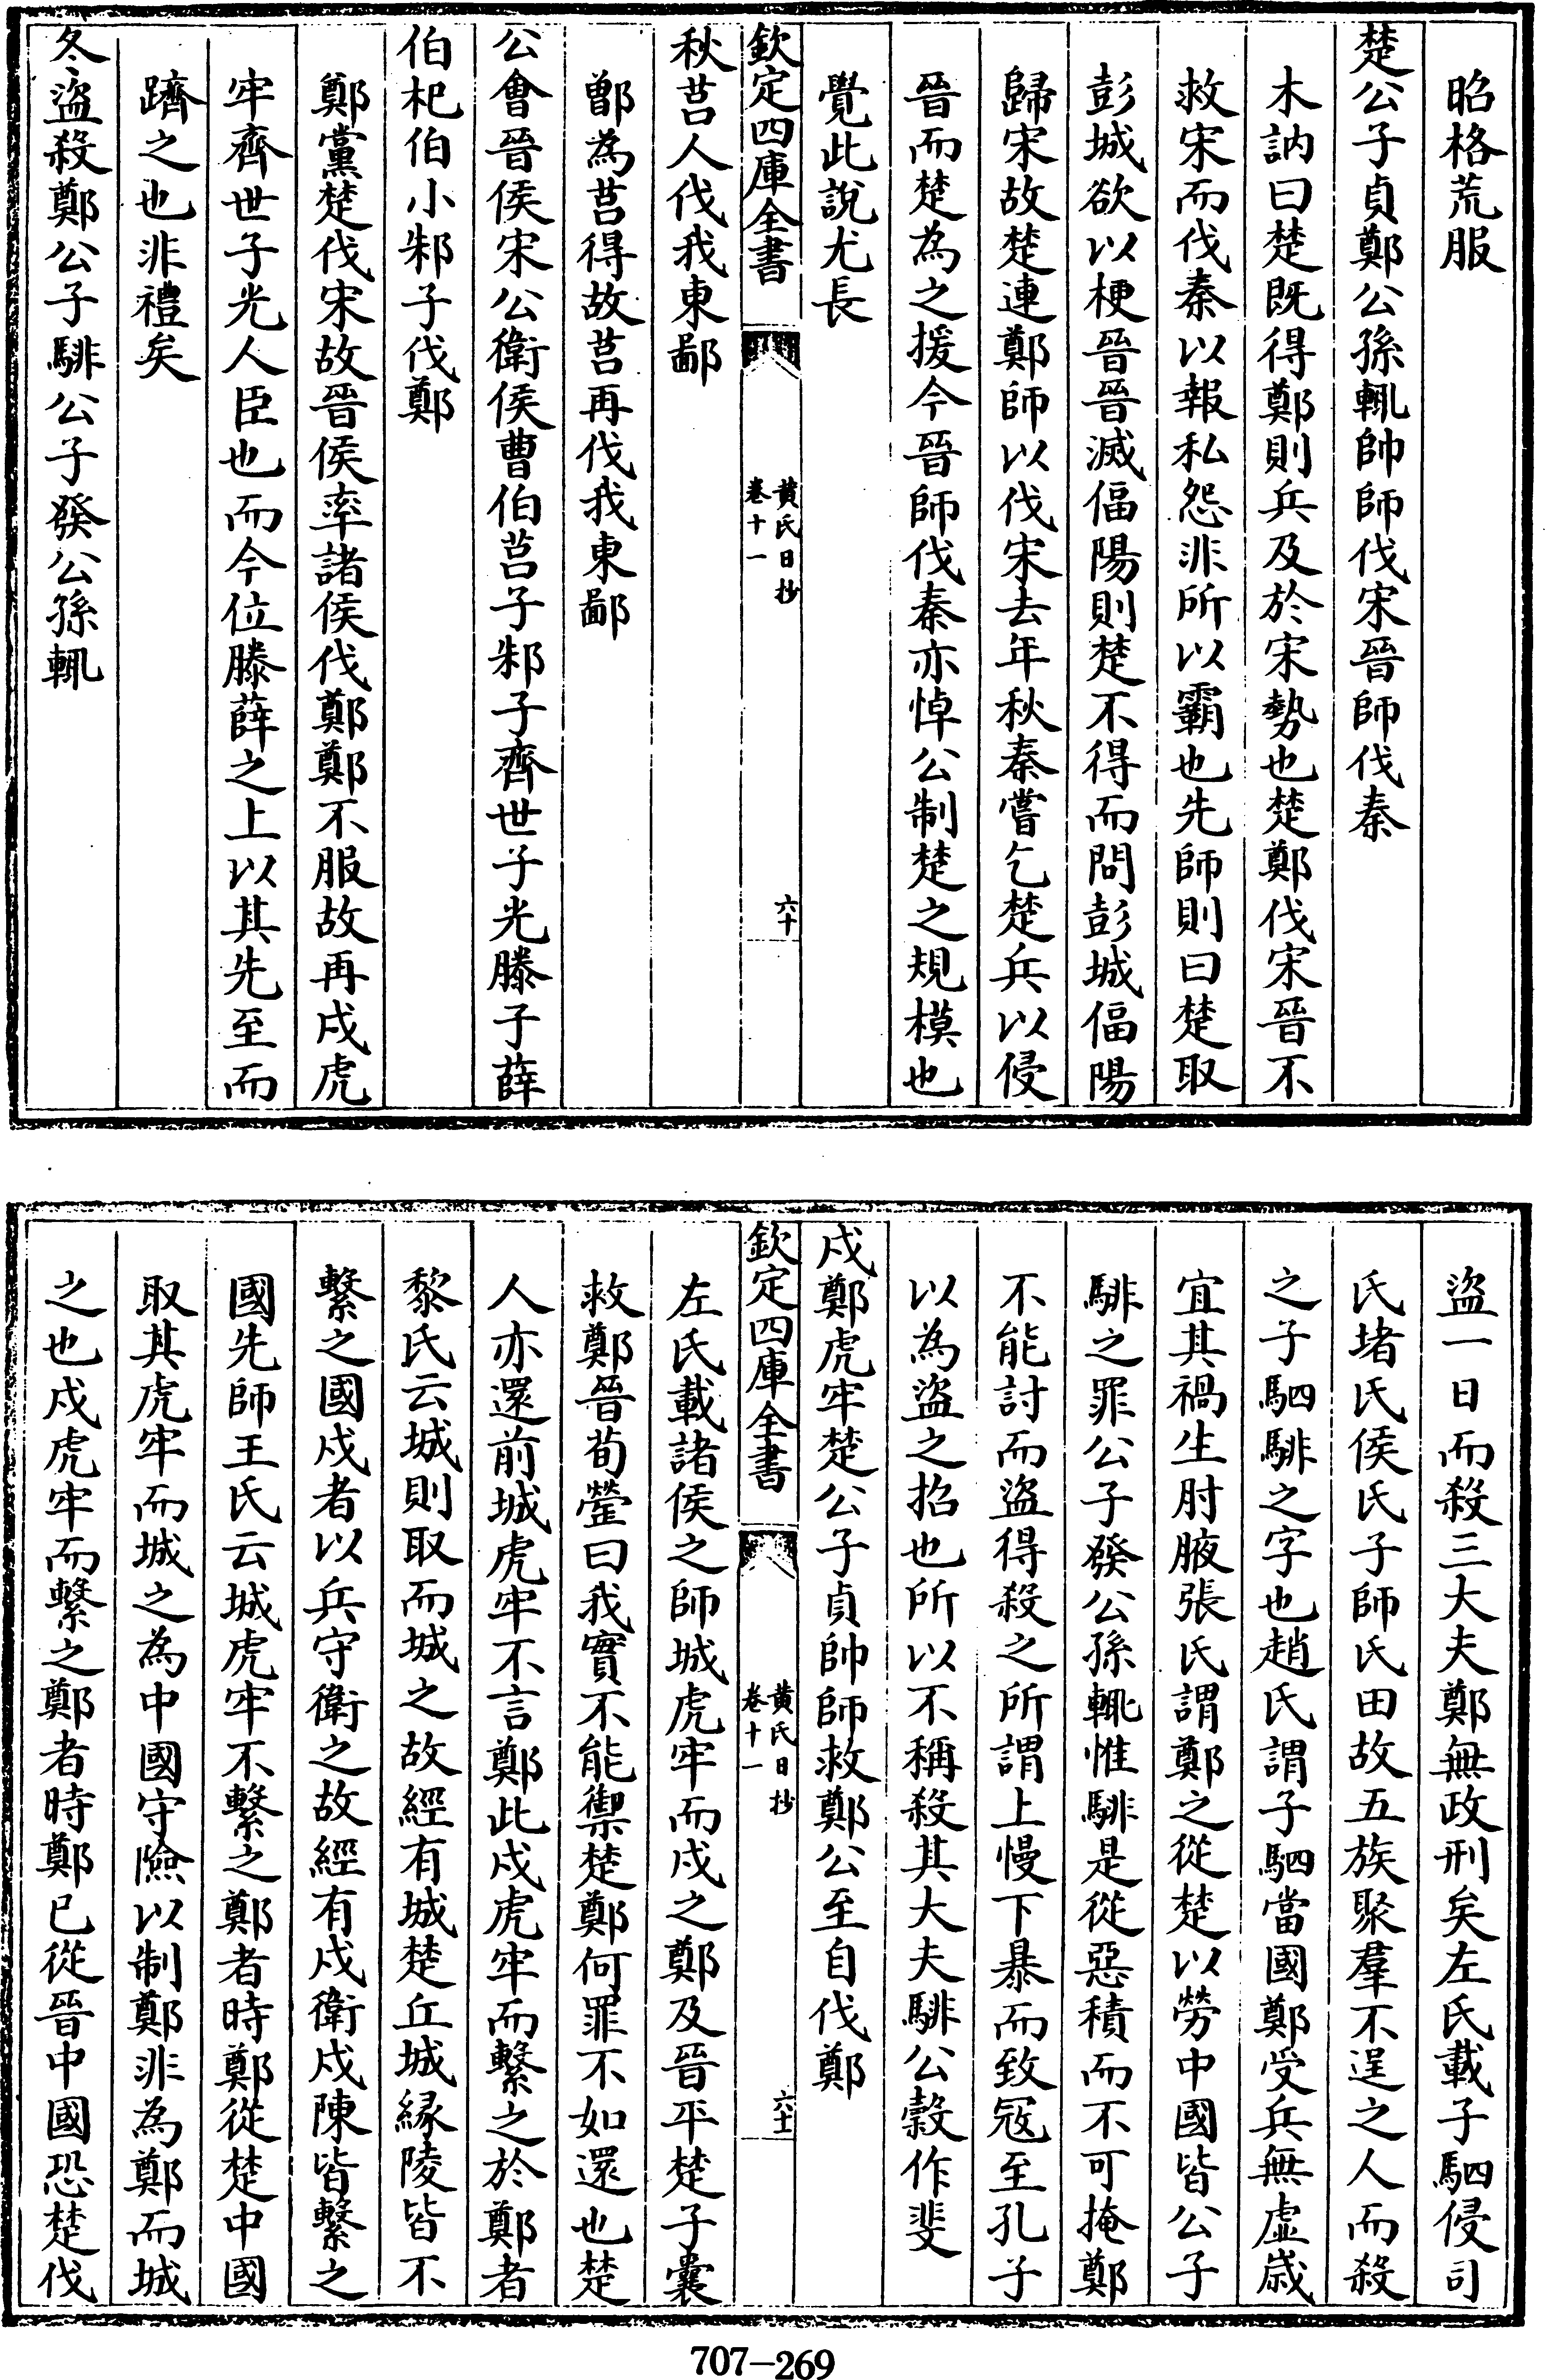 昭格荒服
楚公子貞鄭公孫輒帥師伐宋晉師伐秦
木訥曰楚既得鄭則兵及於宋勢也楚鄭伐宋晉不
救宋而伐秦以報私怨非所以霸也先師則曰楚取
彭城欲以梗晉晉滅偪陽則楚不得而問彭城偪陽
歸宋故楚連鄭師以伐宋去年秋秦嘗乞楚兵以侵
晉而楚為之援今晉師伐秦亦悼公制楚之規模也
覺此說尤長
欽定四庫全書
黃氏日抄
卷十一
六十
秋莒人伐我東鄙
鄫為莒得故莒再伐我東鄙
公會晉侯宋公衛侯曹伯莒子邾子齊世子光滕子薛
伯杞伯小邾子伐鄭
鄭黨楚伐宋故晉侯率諸侯伐鄭鄭不服故再戍虎
牢齊世子光人臣也而今位滕薛之上以其先至而
躋之也非禮矣
冬盜殺鄭公子騑公子發公孫輒
盜一日而殺三大夫鄭無政刑矣左氏載子駟侵司
氏堵氏侯氏子師氏田故五族聚羣不逞之人而殺
之子駟騑之字也趙氏謂子駟當國鄭受兵無虛歲
宜其禍生肘腋張氏謂鄭之從楚以勞中國皆公子
騑之罪公子發公孫輒惟騑是從惡積而不可掩鄭
不能討而盜得殺之所謂上慢下暴而致冦至孔子
以為盜之招也所以不稱殺其大夫騑公糓作斐
戍鄭虎牢楚公子貞帥師救鄭公至自伐鄭
欽定四庫全書
黃氏日抄
卷十一
六十一
左氏載諸侯之師城虎牢而戍之鄭及晉平楚子囊
救鄭晉荀罃曰我實不能禦楚鄭何罪不如還也楚
人亦還前城虎牢不言鄭此戍虎牢而繫之於鄭者
黎氏云城則取而城之故經有城楚丘城緣陵皆不
繫之國戍者以兵守衛之故經有戍衛戍陳皆繫之
國先師王氏云城虎牢不繫之鄭者時鄭從楚中國
取其虎牢而城之為中國守險以制鄭非為鄭而城
之也戍虎牢而繫之鄭者時鄭已從晉中國恐楚伐
707-269